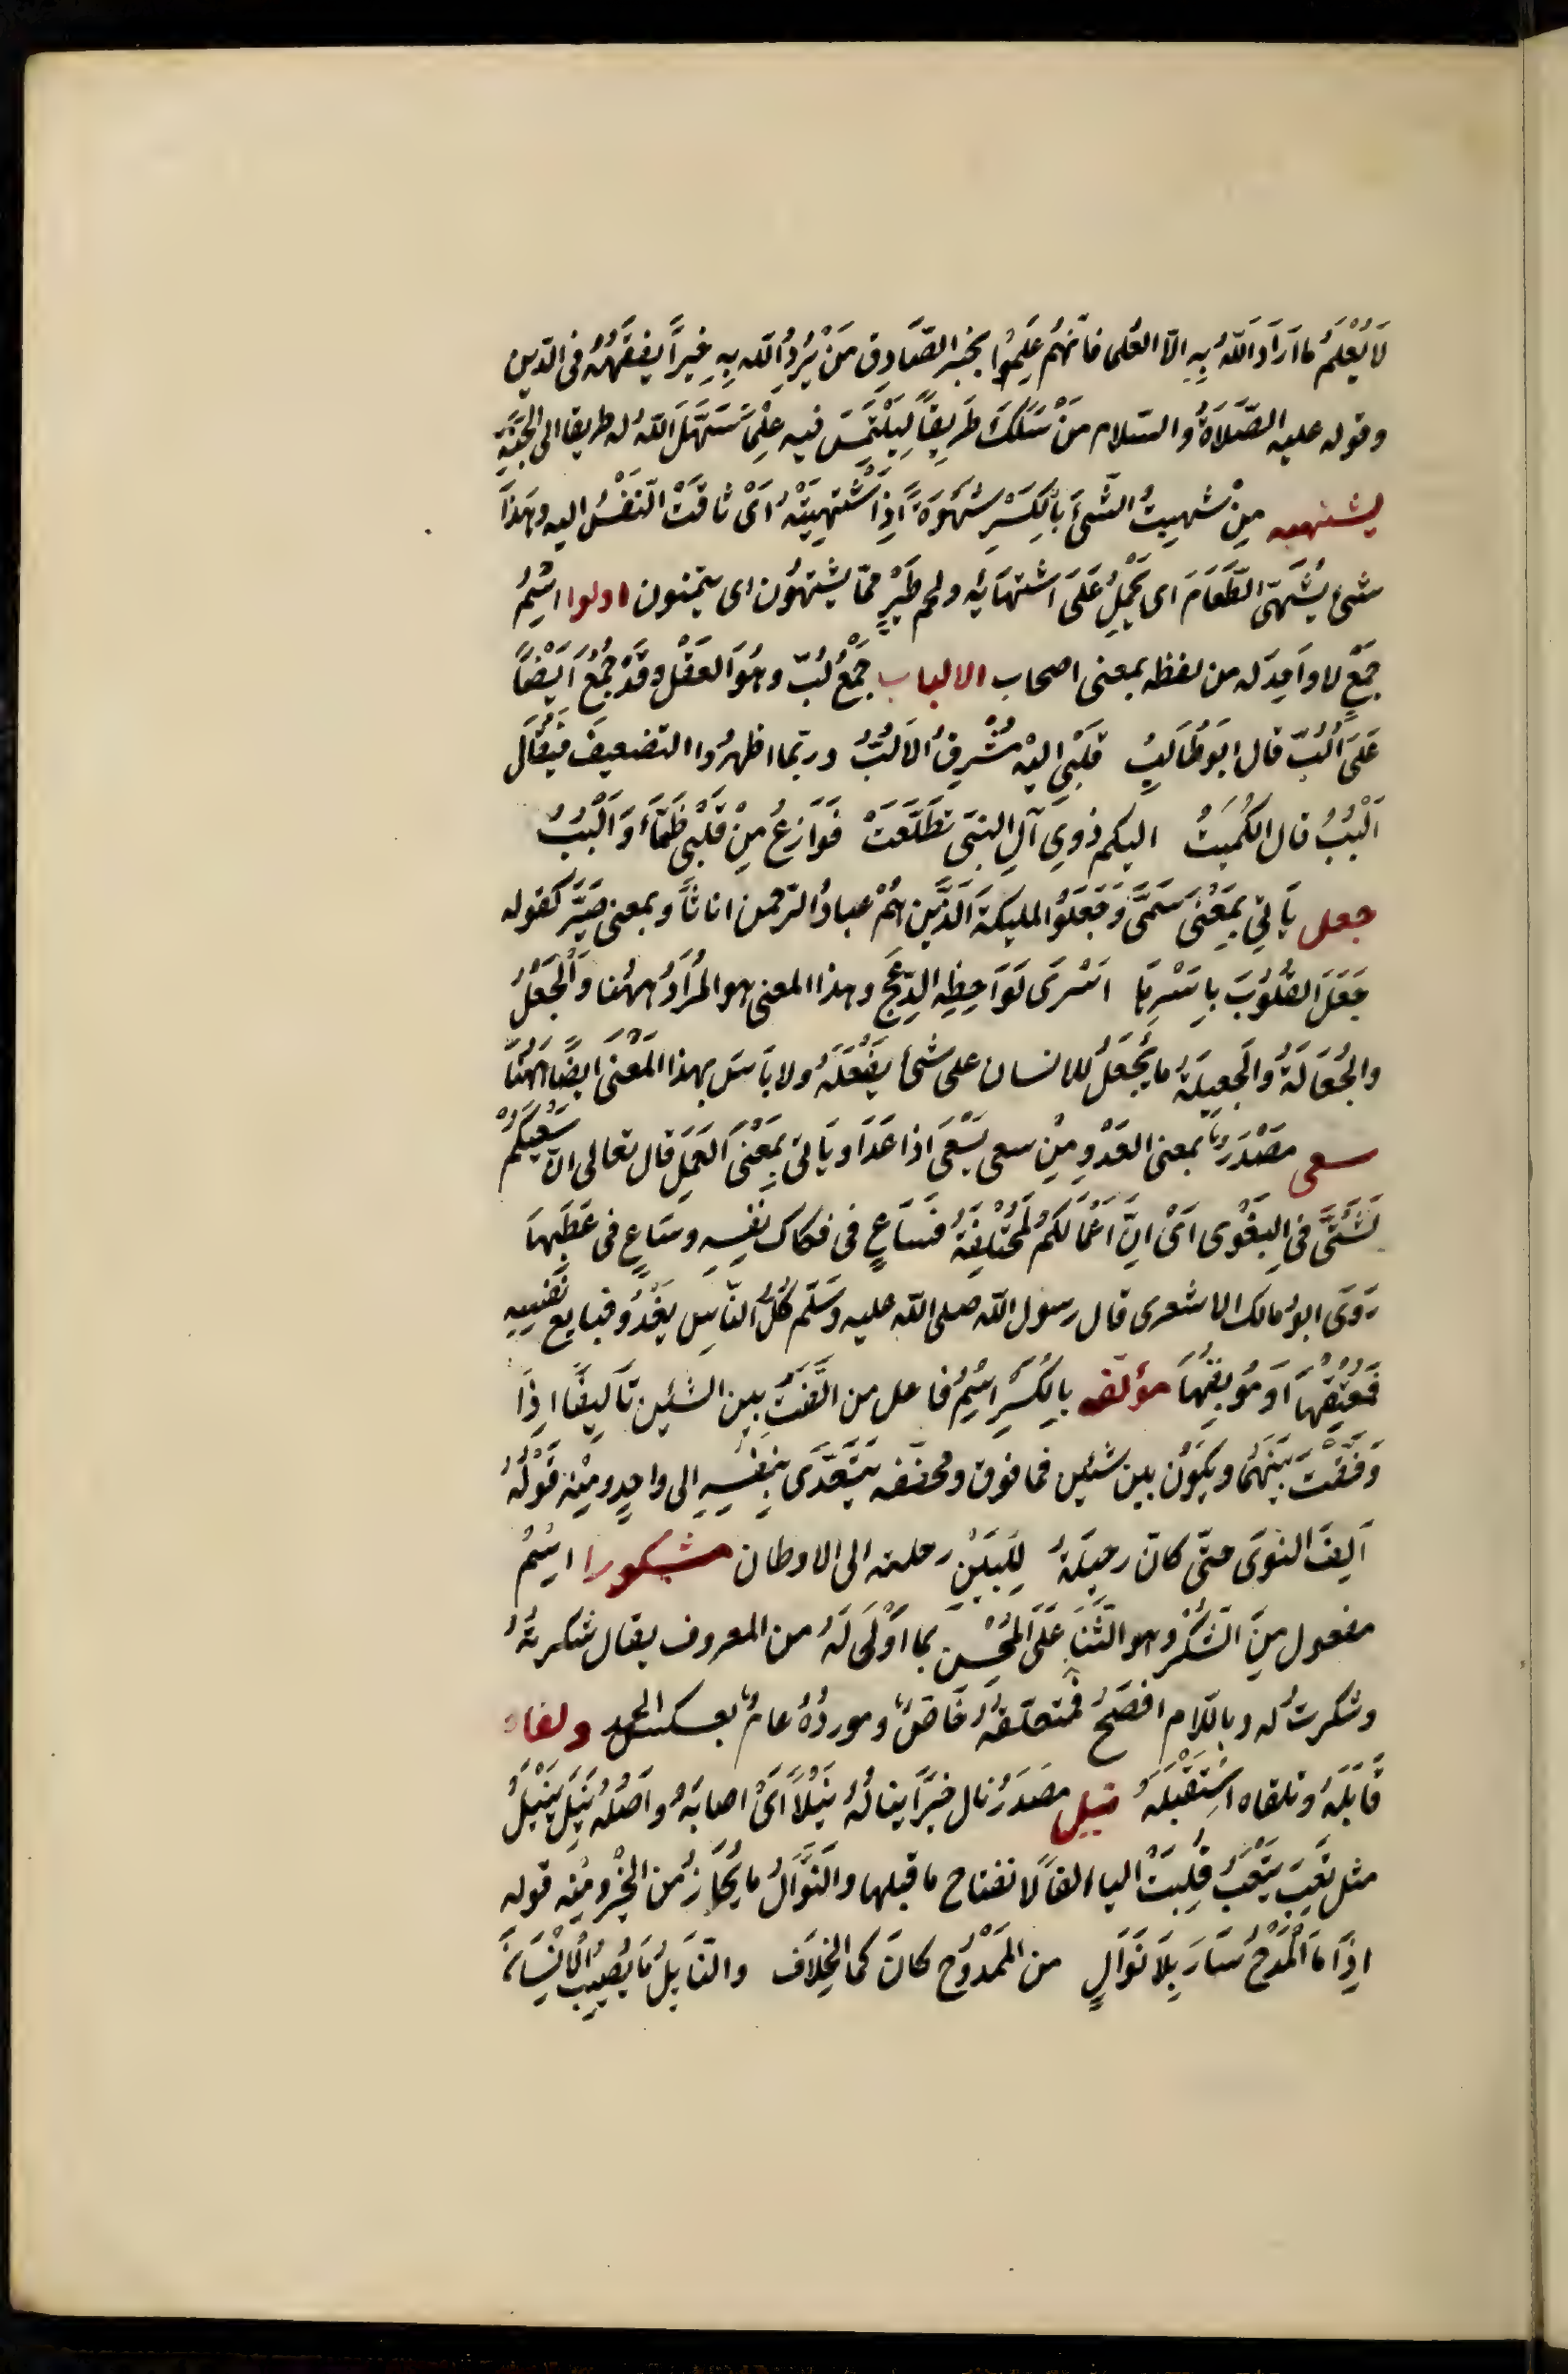 لَا يُعْلَمُ ما اَرَادَ اللّٰهُ بِهِ الّا العُلى فانّهُم عَلِمُوا بخبر الصّادِق مَنْ يُرِدُ اللّٰه بِهِ خيراً يفقّهُهُ فى الدّين
وقوله عليه الصّلاةُ والسّلام مَنْ سَلَكَ طَريقاً لِيَلْتَمِسَ فيه عِلْما سَهَّلَ اللّٰه له طريقا الى الجنّةِ
يشتهيه مِنْ شَهِيتُ الشّئَ بالكِسْرِ شَهْوَةً اِذَا اشْتهيتَهُ اَىْ تاقَتْ النّفْسُ اليه وهٰذَا
شئ يُشَهّى الطّعَامَ اى يَحْمِلُ عَلَى اشتهائِه ولحم طَيْرٍ ممّا يشتهُون اى يتمنون اولوا اسْمُ
جَمْعٍ لا وَاحِدَ له من لفظه بمعنى اصحاب الالباب جَمْعُ لُبّ وهُوَ العَقْل وقَدْ جُمِعَ اَيْضاً
عَلَى اَلُبّ قال ابو طَالِبٍ قَلْبى اليْه مُشْرِفُ الاَلُبُّ وربّما اظهرُوا التضعيفَ فيُقَال
اَلْبُبُ قال الكُمَيتُ اليكم ذوى آلِ النبَى تَطَلَّعَتْ نَوَازِعُ مِنْ قَلْبى ظَمَآءُ وَاَلْبُبُ
جعل يَأتِى بمَعْنى سَمَّى وَجَعَلُوا المليكةَ الَّذِين هُمْ عبادُ الرّحمن اناثاً وبمعنى صَيَّر كقوله
جَعَلَ القُلُوبَ بِاَسْرِهَا اَسْرَى لَوَاحِظِهِ الدِّعَجَ وهذا المعنى هو المُرَادُ هٰهُنا وَالجَعْلُ
والجُعَالَةُ والجَعِيلَةُ ما يُجْعَلُ للانسان على شئ يَفْعَلَهُ ولا بَاسَ بهذا المَعْنَى ايضًا هُنَا
سعى مَصْدَرٌ بمعنى العَدْوِ مِنْ سعى يَسْعَى اذا عَدَا ويَأتى بمَعْنَى العَمَلِ قال تعالى انّ سَعْيَكُمْ
لَشَتَّى فى البغْوى اَىْ اِنَّ اَعْمَالَكُمْ لَمُخْتَلِفَةُ فَسَاعٍ فى فكاك نَفْسِهِ وسَاعٍ فى عَطَبِهَا
رَوَى ابو مالك الاشعرى قال رسول اللّٰه صلى اللّٰه عليه وسَلّم كُلُّ النّاسِ يغْدُو فبايع نَفْسِهِ
فمُعْتِقُهَا اَو مُوبِقُهَا مؤلّفه بالكَسْرِ اسْمُ فاعل من الّفْتُ بين الشئين تَأليفًا اِذَا
وَفّقْتَ بَيْنهُمَا ويكوُن بين شئين فما فوق ومُخفّفه يَتَعَدَّى بنَفْسِهِ الى واحِدٍ ومِنْه قَوْلُهُ
اَلِفَ النوَى حتّى كانّ رحيلَهُ لِلْبَيْنِ رحلته الى الاوطان مشكورا اسْمُ
مفعول مِنَ الشُّكْر وهو الثَّنَا عَلَى المُحْسِنِ بما اَوْلَى لَهُ من المعروف يقال شكرتُهُ
وشكرتُ له وباللّام افصَحُ فمتعلّقُهُ خَاصٌّ وموردُهُ عامٌّ بعكس الحمد ولقاه
قَابَلَهُ وتلقاه اسْتَقْبَلَهُ نيل مَصْدَرُ نال خيْراً ينالُهُ نَيْلاً اَىْ اصابَهُ واَصْلُهُ نَيِلَ يَنْيَلُ
مثل تَعِبَ يَتْعَبُ قُلِبَتْ الياء الفاً لانفتاح ما قبلها والنَّوَالُ ما يُحَازُ من الخيْر ومِنْه قوله
اِذَا مَا المَدْحُ سَارَ بِلَا نَوَالٍ من المَمْدُوحِ كانَ كما الخِلَاف والنّايلُ ما يُصيبُ الاِنْسَان